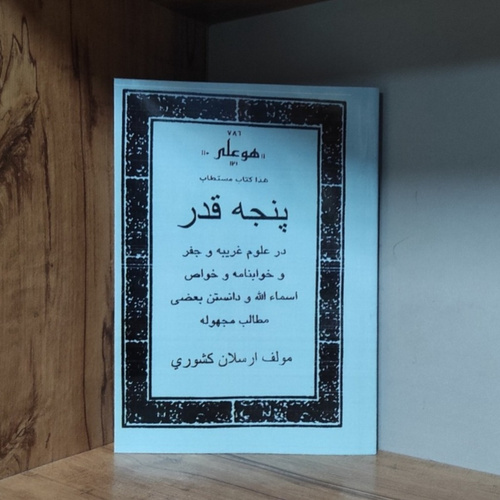 ٧٨٦
١١٠ هو علی ١١
١٢١
هذا کتاب مستطاب
پنجه قدر
در علوم غریبه و جفر
و خوابنامه و خواص
اسماء الله و دانستن بعضی
مطالب مجهوله
مولف ارسلان کشوري